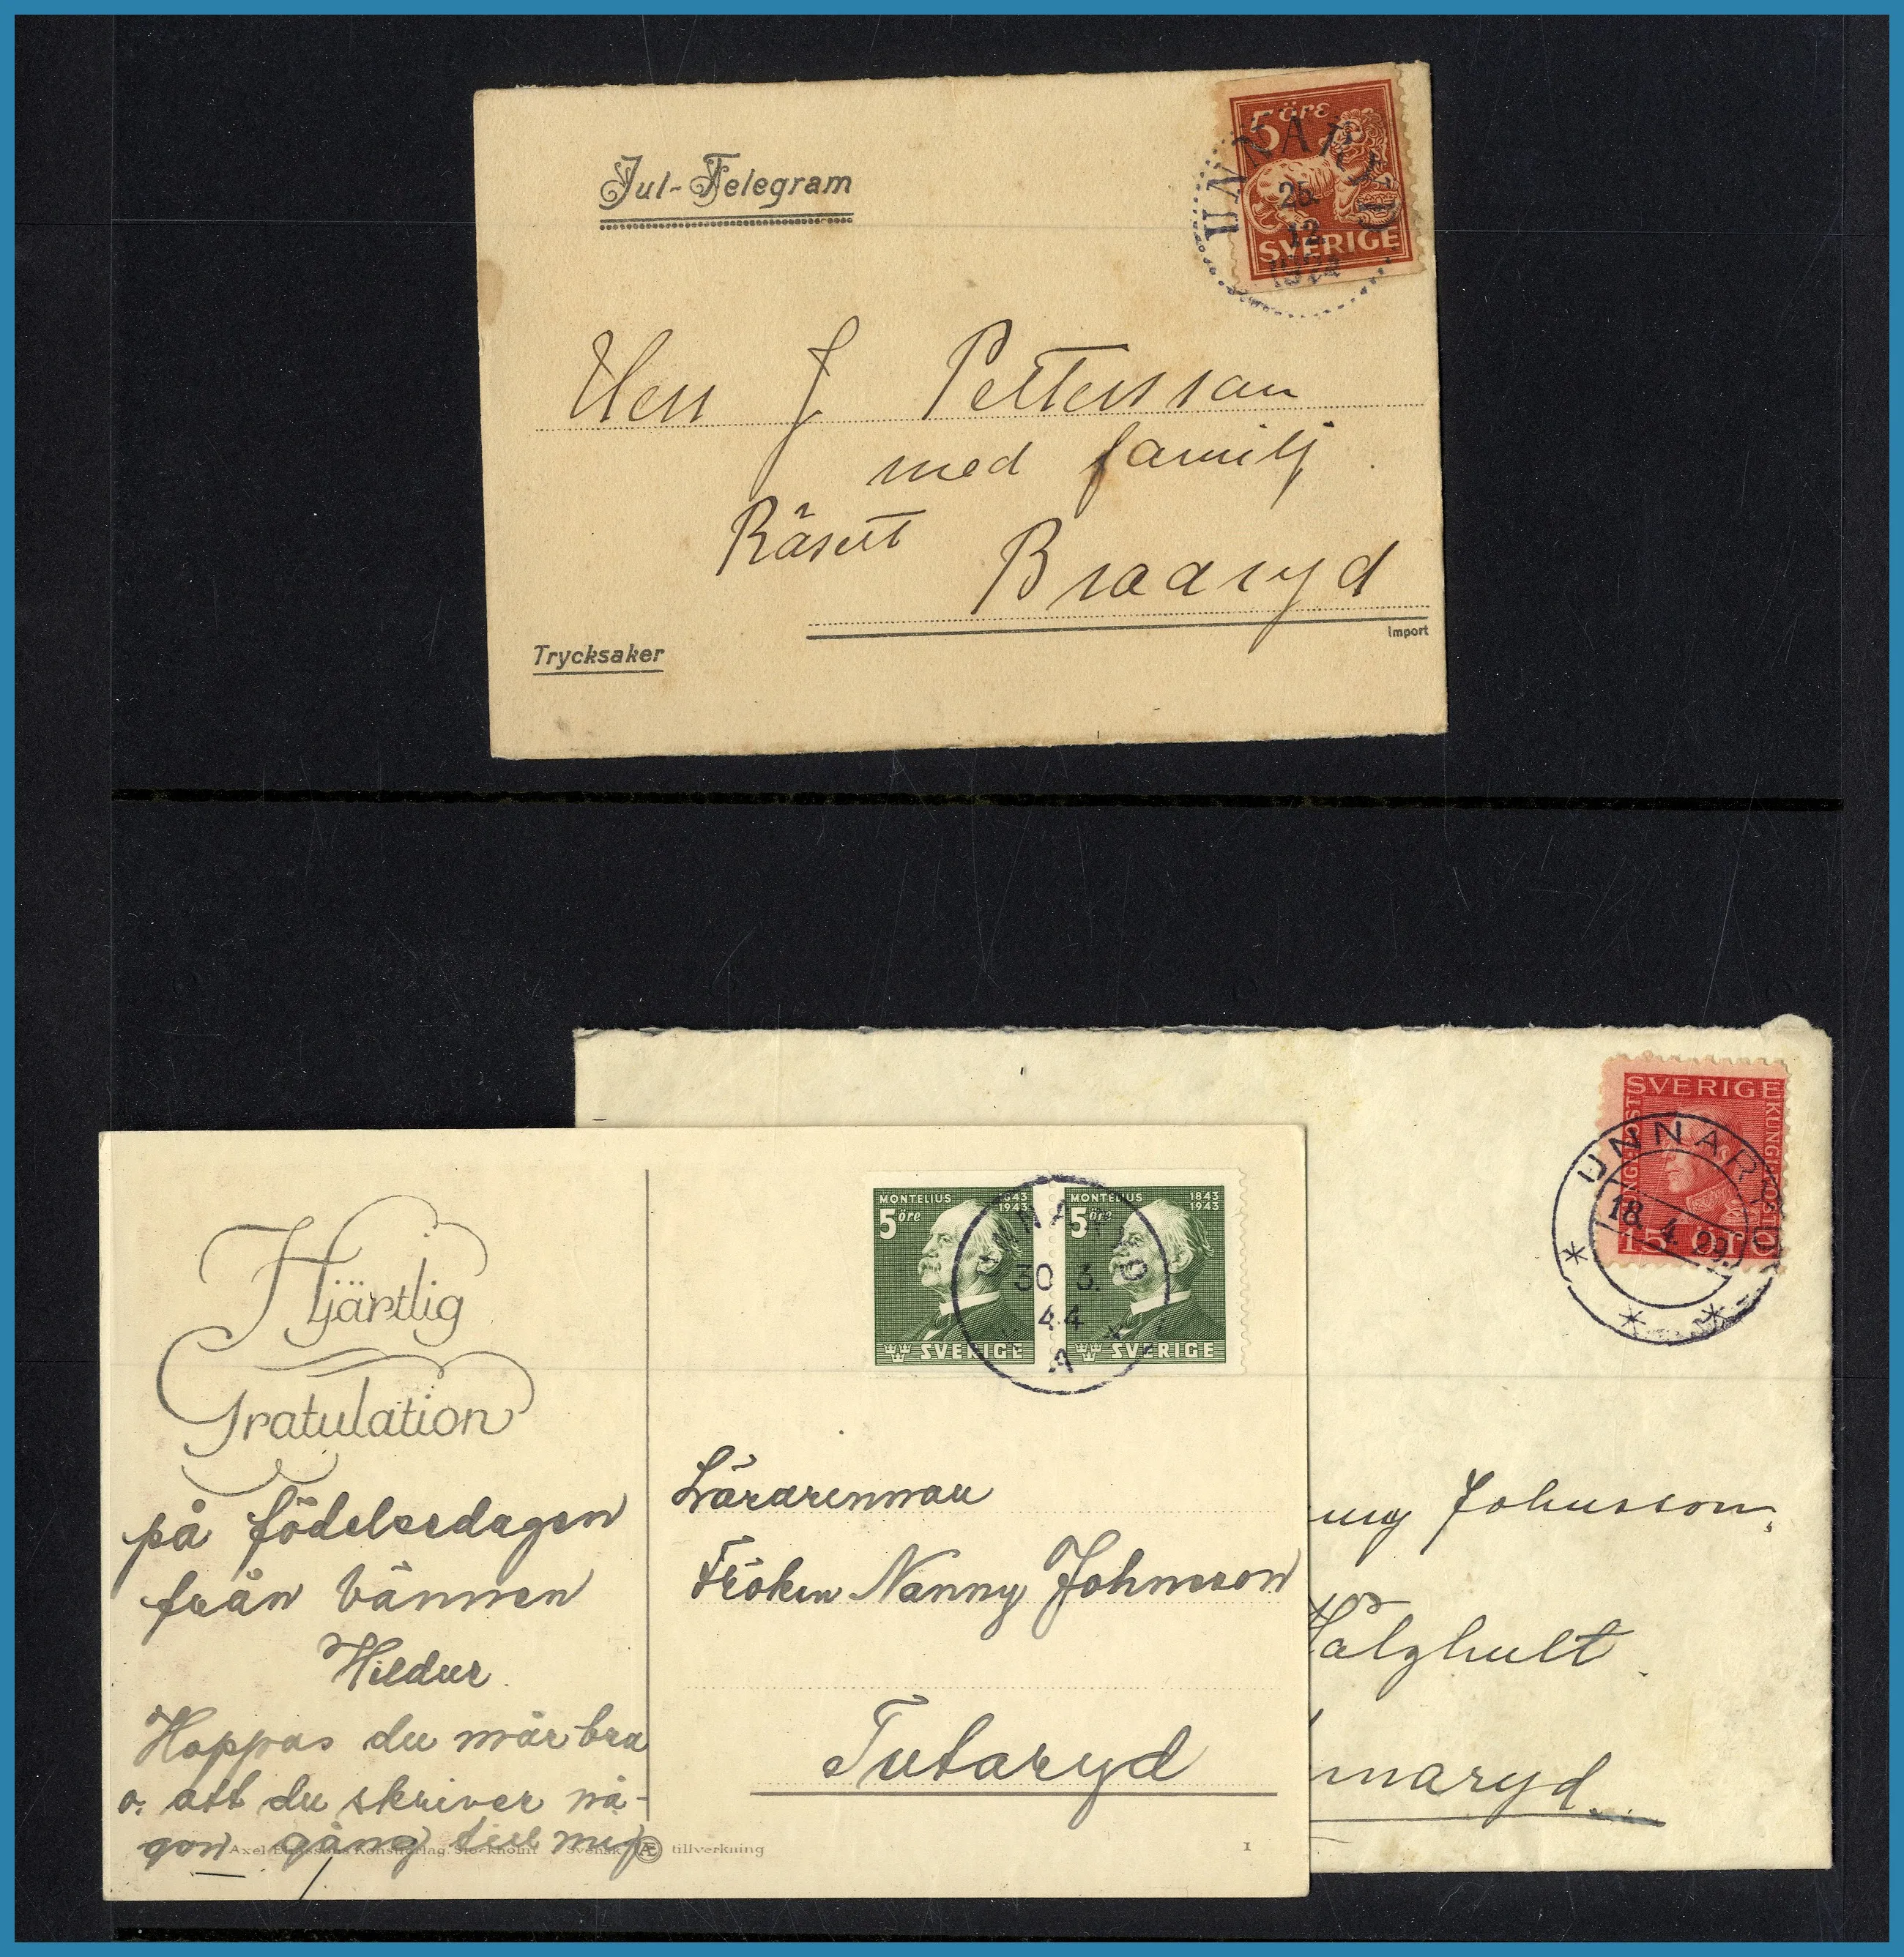 Jul-Telegram
5 öre
SVERIGE
UNNARYD
25.
12.
Herr J Pettersson
med familj
Bräaryd
Trycksaker
Import
SVERIGE
15 ÖRE
UNNARYD
18. 4. 29.
ny Johnsson,
naryd
MONTELIUS 1843
1943
5 öre
SVERIGE
MONTELIUS 1843
1943
5 öre
SVERIGE
UNNARYD
30 3.
44
A
Hjärtlig
Gratulation
på födelsedagen
från vännen
Hildur.
Hoppas du mår bra
o. att du skriver nå-
gon gång till mig
Lärarinnan
Fröken Nanny Johnsson
Tutaryd
Axel Eliassons Konstförlag, Stockholm Svensk Æ tillverkning
1